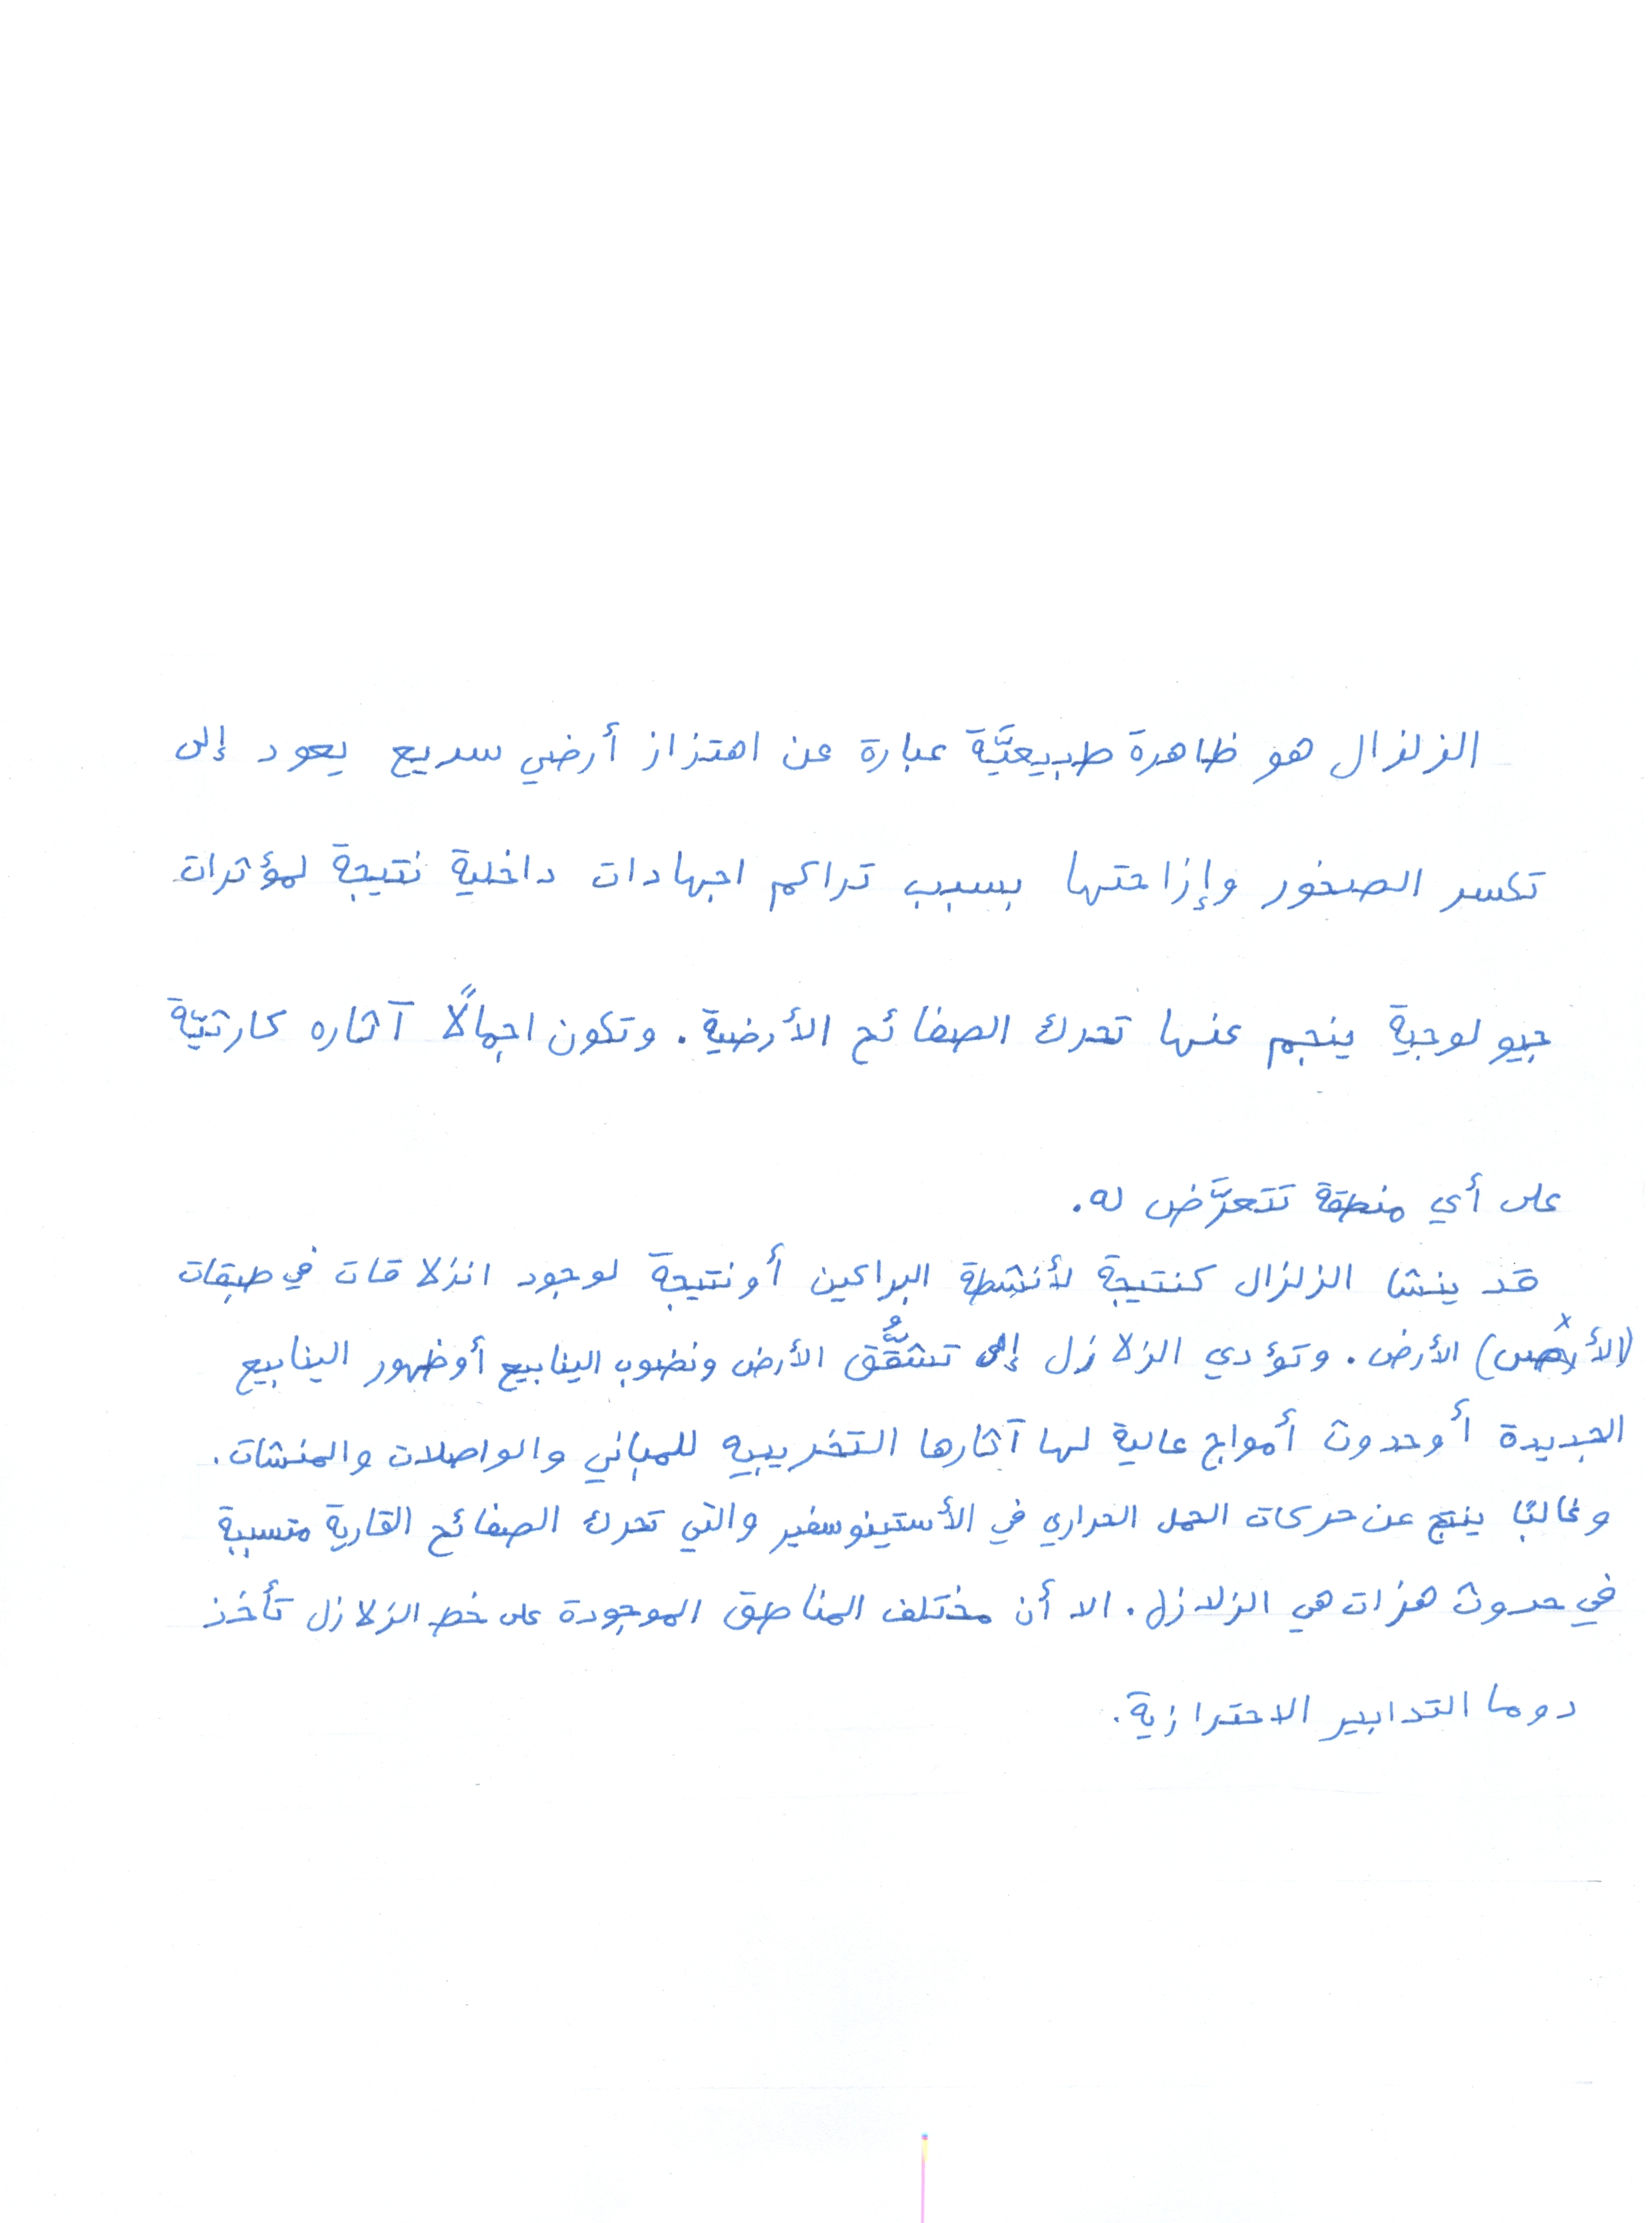 الزلزال هو ظاهرة طبيعيَّة عبارة عن اهتزاز أرضي سريع يعود إلى
تكسر الصخور وإزاحتها بسبب تراكم اجهادات داخلية نتيجة لمؤثرات
جيولوجية ينجم عنها تحرك الصفائح الأرضية. وتكون اجمالًا آثاره كارثيّة
على أي منطقة تتعرَّض له.
قد ينشا الزلزال كنتيجة لأنشطة البراكين أو نتيجة لوجود انزلاقات في طبقات
(الأرض) الأرض. وتؤدي الزلازل إلى تشقُّق الأرض ونضوب الينابيع أو ظهور الينابيع
الجديدة أو حدوث أمواج عالية لها آثارها التخريبيه للمباني والواصلات والمنشات.
وغالبًا ينتج عن حركات الحمل الحراري في الأستينوسفير والتي تحرك الصفائح القارية متسببة
في حدوث هزات هي الزلازل. الا أن مختلف المناطق الموجودة على خط الزلازل تأخذ
دوما التدابير الاحترازية.